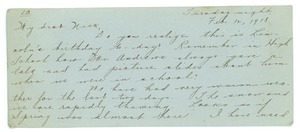 Tuesday night,
Feb. 12, 1918
My dear Nira,
Do you realize this is Lin-
coln's birthday to-day? Remember in High
School how Dr. Andrews always gave a
talk and had picture slides about him
when we were in school!
We have had very warm wea-
ther for the last day. The snow and
ice are rapidly thawing. Looks as if
Spring was almost here! I have